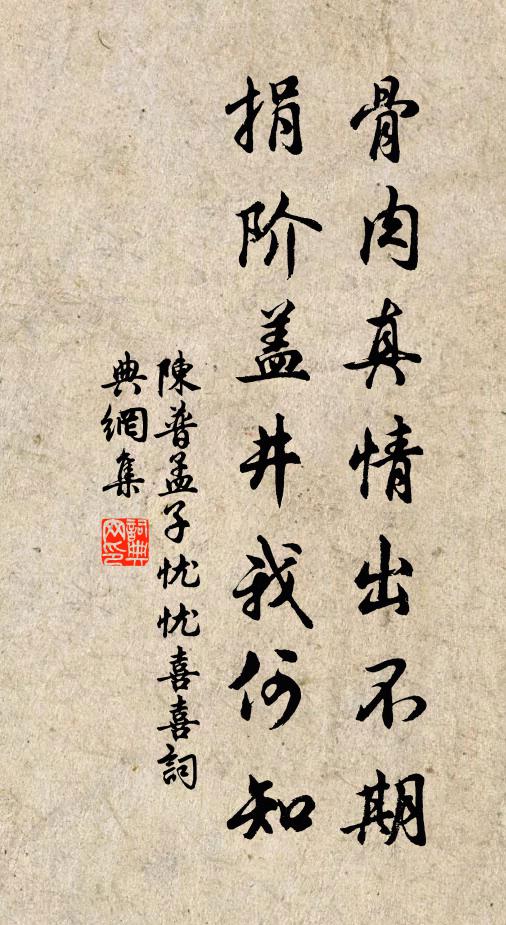 骨肉真情出不期
捐阶盖井我何知
陳普孟子忧忧喜喜詞
典網集
詞典
网印